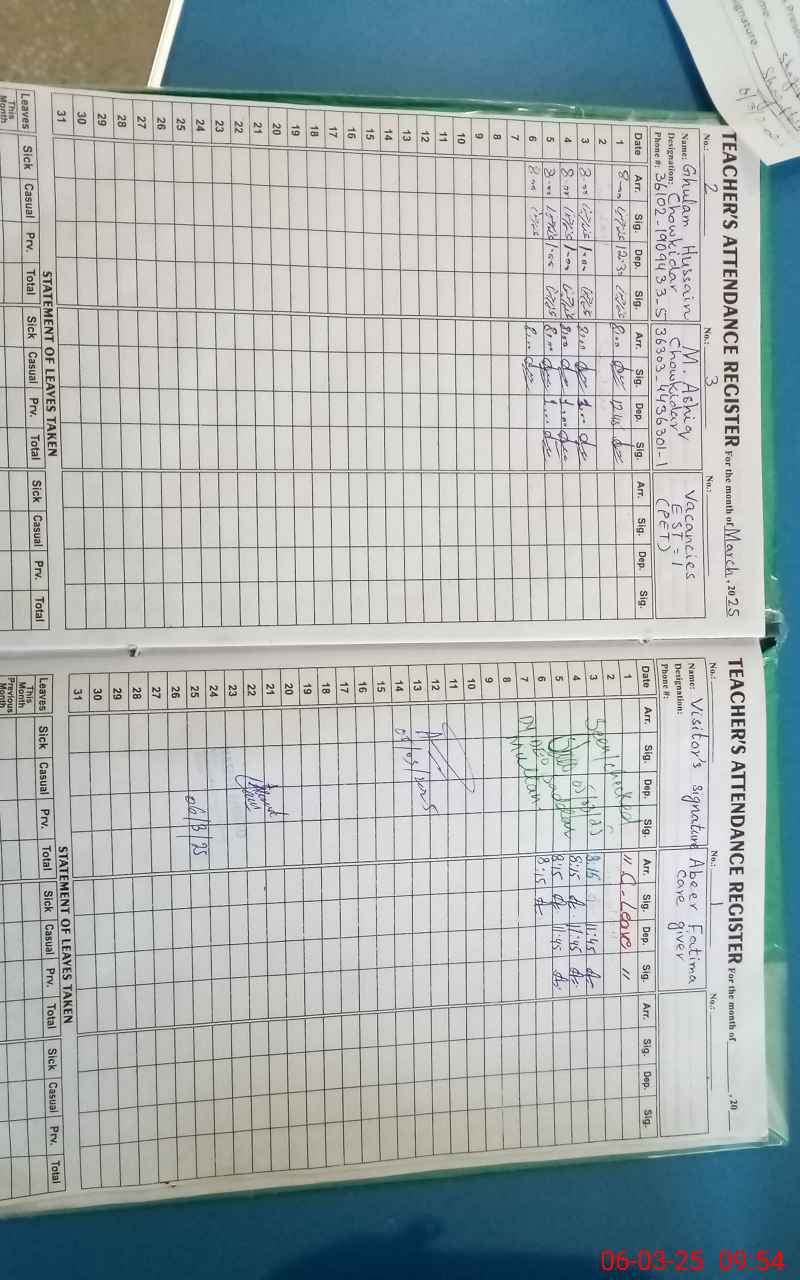 TEACHER'S ATTENDANCE REGISTER For the month of March, 2025
No.: 2 No.: 3 No.:
Name: Ghulam Hussain M. Ashiq Vacancies
Designation: Chowkidar Chowkidar EST = 1
Phone #: 36102-1909433-5 36303-4436301-1 (PET)
Date Arr. Sig. Dep. Sig. Arr. Sig. Dep. Sig. Arr. Sig. Dep. Sig.
1 8:00 12:30 8:00 12:45
2
3 8:00 1:00 8:00 1:00
4 8:00 1:00 8:00 1:00
5 8:00 1:00 8:00 1:00
6 8:00 8:00
7
8
9
10
11
12
13
14
15
16
17
18
19
20
21
22
23
24
25
26
27
28
29
30
31
STATEMENT OF LEAVES TAKEN
Leaves Sick Casual Prv. Total Sick Casual Prv. Total Sick Casual Prv. Total
This Month
TEACHER'S ATTENDANCE REGISTER For the month of , 20
No.: No.: 1 No.:
Name: Visitor's signature Abeer Fatima
Designation: care giver
Phone #:
Date Arr. Sig. Dep. Sig. Arr. Sig. Dep. Sig. Arr. Sig. Dep. Sig.
1 " C-Leave "
2
3 8:15 11:45
4 8:15 11:45
5 8:15 11:45
6 8:15
7
8
9
10
11
12
13
14
15
16
17
18
19
20
21
22
23
24
25 06/3/25
26
27
28
29
30
31
STATEMENT OF LEAVES TAKEN
Leaves Sick Casual Prv. Total Sick Casual Prv. Total Sick Casual Prv. Total
This Month
Previous Month
06-03-25 09:54